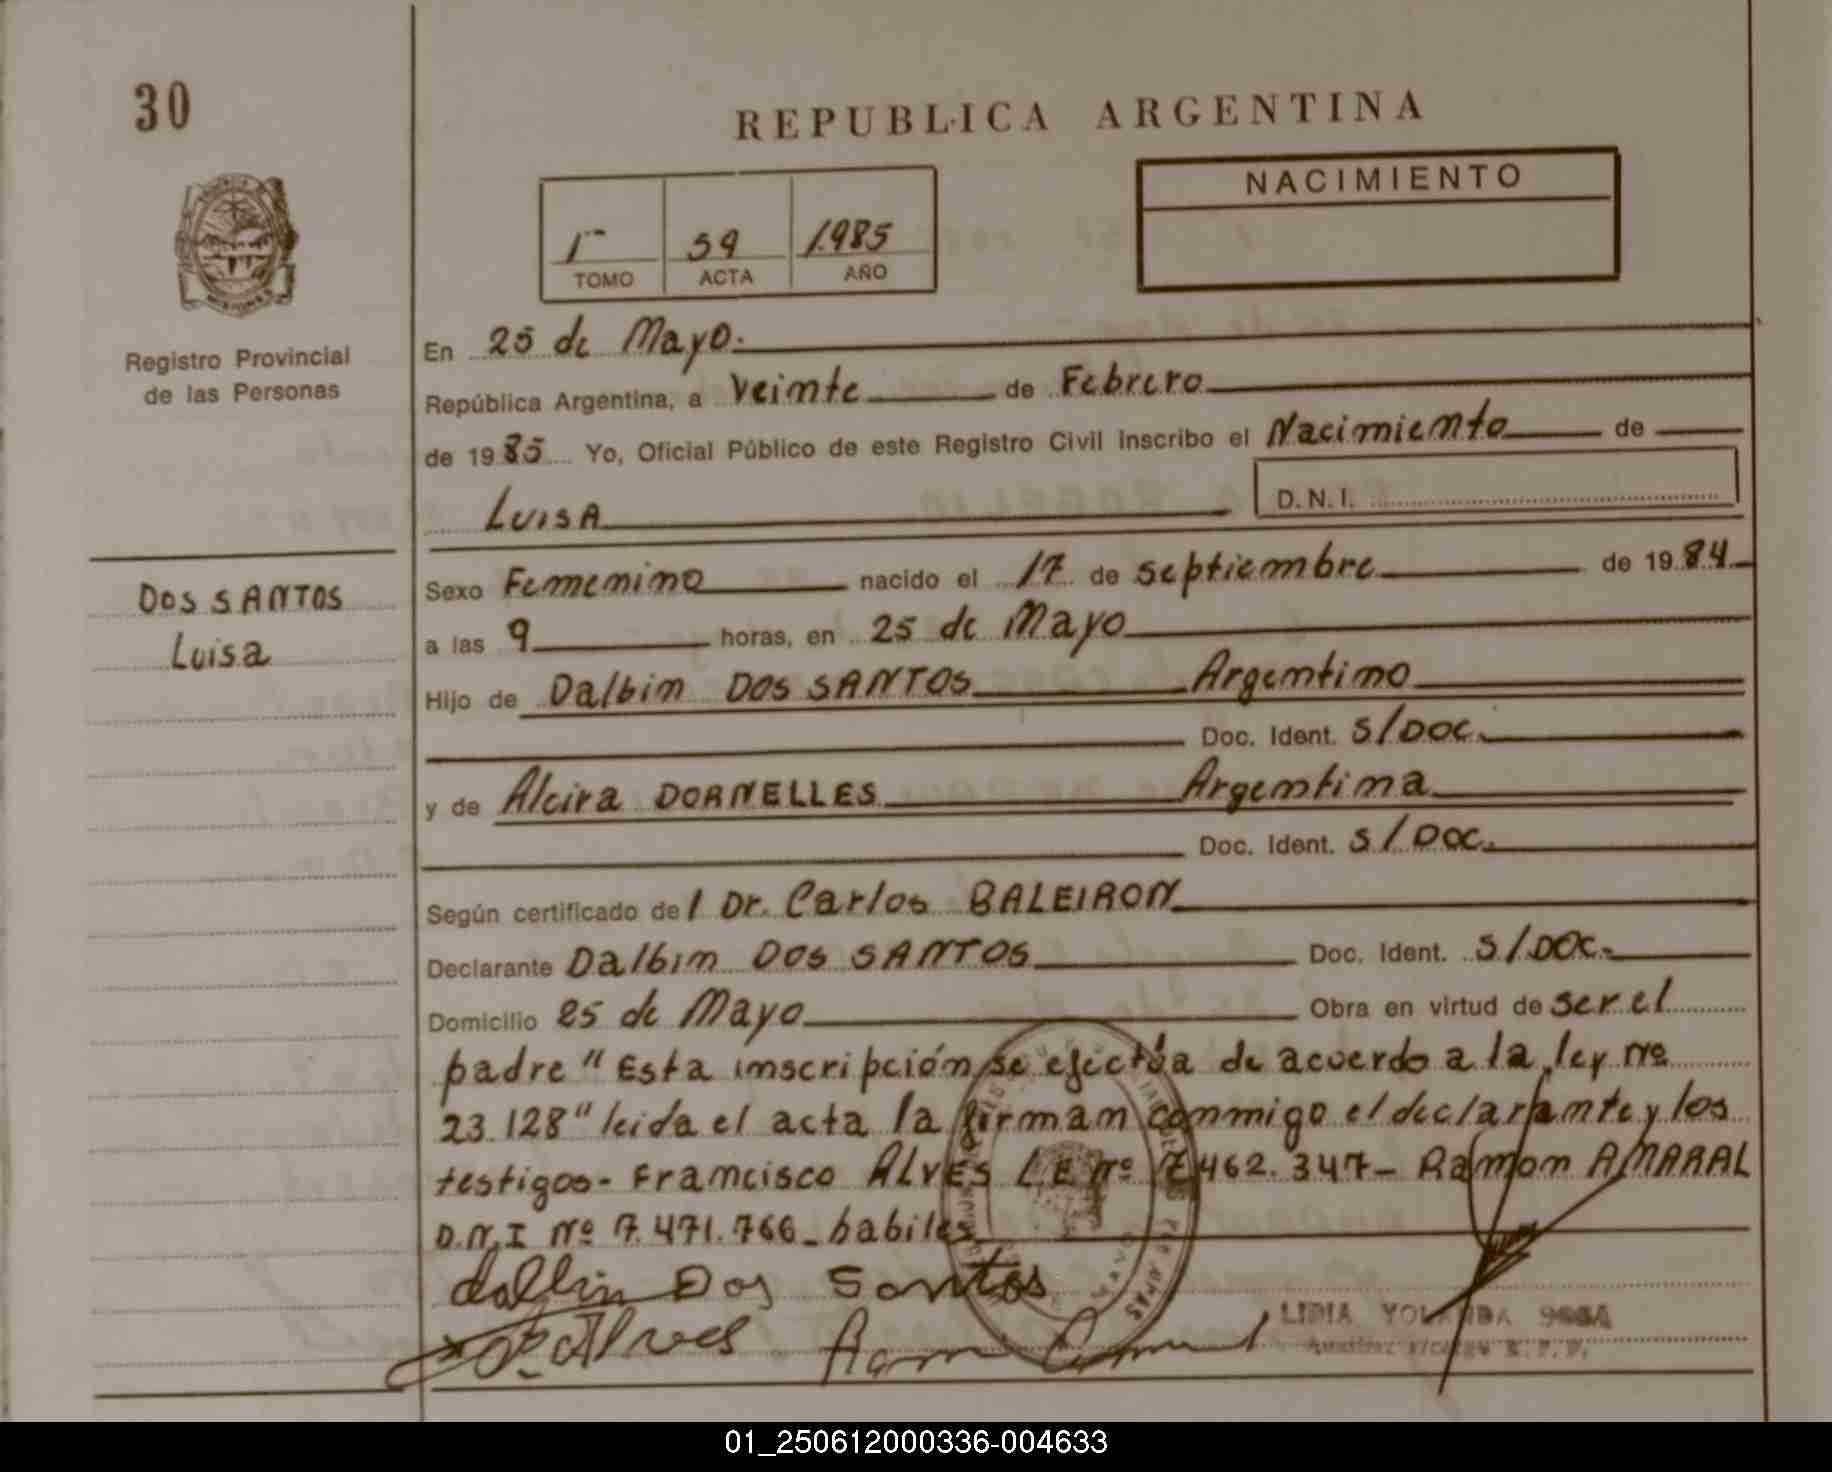 30
REPUBLICA ARGENTINA
NACIMIENTO
1 59 1.985
TOMO ACTA AÑO
MISIONES
Registro Provincial
de las Personas
En 25 de Mayo.
República Argentina, a veinte de Febrero
de 1985 Yo, Oficial Público de este Registro Civil inscribo el Nacimiento de
LUISA
D.N.I.
DOS SANTOS
Luisa
Sexo Femenino nacido el 17 de septiembre de 1984
a las 9 horas, en 25 de Mayo
Hijo de Dalbin DOS SANTOS Argentino
Doc. Ident. S/DOC.
y de Alcira DORNELLES Argentina
Doc. Ident. S/DOC.
Según certificado del Dr. Carlos BALEIRON
Declarante Dalbin DOS SANTOS Doc. Ident. S/DOC.
Domicilio 25 de Mayo Obra en virtud de ser el
padre "Esta inscripción se efectúa de acuerdo a la ley Nº
23.128" leida el acta la firman conmigo el declarante y los
testigos- Francisco ALVES L.E Nº 7.462.347- Ramon AMARAL
D.N.I Nº 7.471.766- habiles
dalbin Dos Santos
Alves
Ramon
LIDIA YOLANDA
01_250612000336-004633